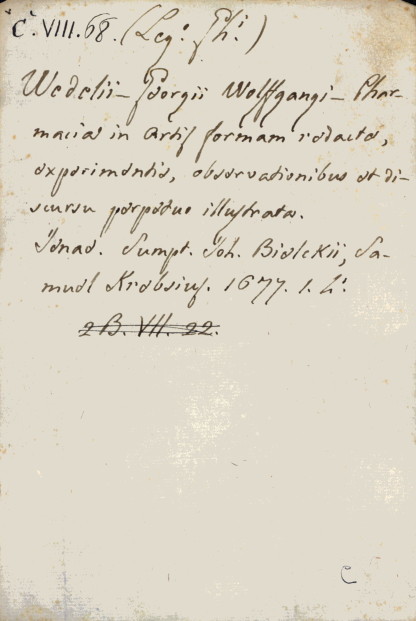 C. VIII. 68. (Leg. Th.)
Wedelii – Georgii Wolffgangi – Phar-
macia in Artis formam redacta,
experimentis, observationibus et di-
scursu perpetuo illustrata.
Jenae. Sumpt. Joh. Bielckii, Sa-
muel Krebsius. 1677. 1. L.
2 B. VII. 22.
C